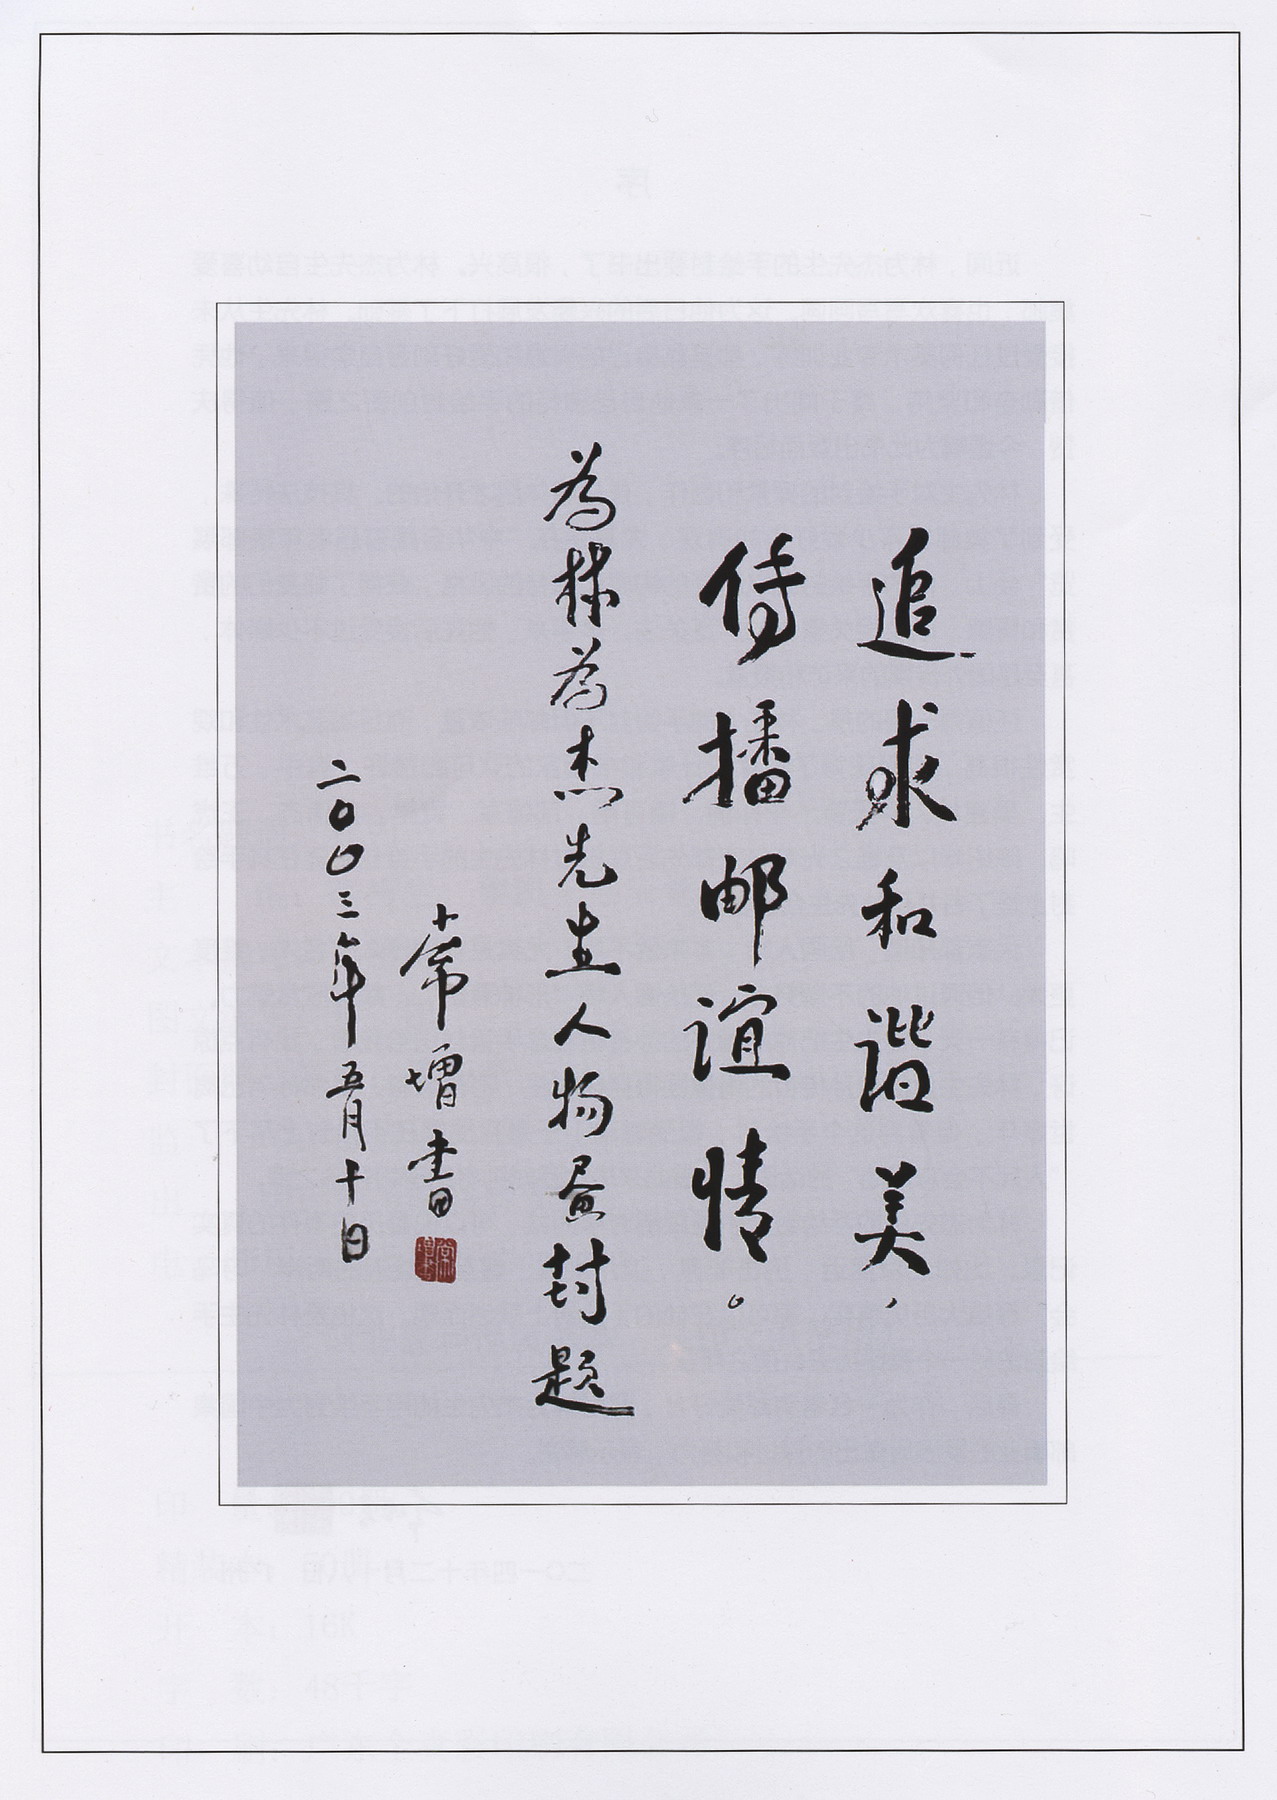 追求和谐美，
传播邮谊情。
為林為杰先生人物画封题
常增书
二〇〇三年五月十日
常增书